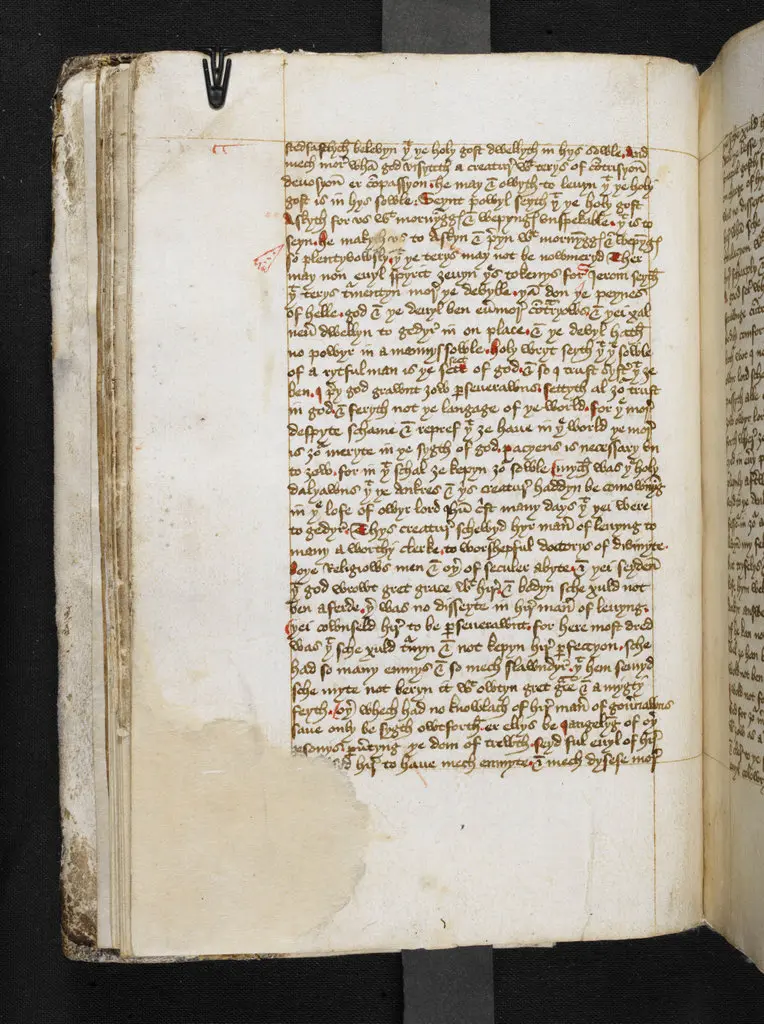 stedfastlych belevyn þt þe holy gost dwellyth in hys sowle. And
mech mor whan god visyteth a creatur wt terys of contrisyon
devosyon er compassyon. he may & owyth to levyn þt þe holy
gost is in hys sowle. Seynt powyl seyth þt þe holy gost
Askyth for vs wt mornynggys & wepyngys vnspekable. þt is to
seyn. he makyth vs to Askyn & preyn wt mornynggys & wepyngys
so plentyvowsly. þt þe terys may not be nowmeryd Ther
may non euyl spyrit ʒeuyn þes tokenys for Jerom seyth
þt terys turmentyn mor þe devylle. þan don þe peynes
of helle. god & þe deuyl ben euermor contraryows & þei xal
neuer dwellyn to gedyr in on place. & þe devyl hath
no powyr in a mannys sowle. Holy wryt seyth þt þe sowle
of a rytful man is þe sete of god. & so I trust syster þt ʒe
ben. I prey god grawnt ʒow perseuerawns. Settyth al ʒowr trust
in god & feryth not þe langage of þe world. for þe mor
despyte schame & repref þt ʒe haue in þe world þe mor
is ʒowr meryte in þe sygth of god. pacyens is necessary vn
to ʒow. for in þt schal ʒe kepyn ʒowr sowle Mych was þe holy
dalyawns þt þe ankres & þis creatur haddyn be comownyng
in þe lofe of owyr lord Jhesu crist many days þt þei were
to gedyr. Thys creatur schewyd hyr maner of leuyng to
many a worthy clerke. to worshepful doctorys of divinyte.
boþe Religiows men & oþer of seculer abyte. & þei seyden
þt god wrowt gret grace wt hir & bodyn sche xuld not
ben aferde. þer was no disseyte in hir maner of leuyng.
þei cownseld hir to be perseuerawnt. for here most dred
was þt sche xuld turnyn & not kepyn hir perfeccyon. sche
had so many enmys & so mech slawndyr. þt hem semyd
sche myte not beryn it wt owtyn gret grace & a mygty
feyth. Oþer whech had no knowlach of hir maner of gouernawns
saue only be sygth owtforth. er ellys be jangelyng of oþer
personys peruertyng þe dom of trewth. seyd ful euyl of hir
hir to haue mech enmyte. & mech dysese mor